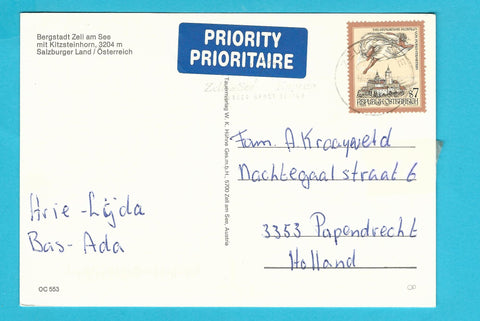 Bergstadt Zell am See
mit Kitzsteinhorn, 3204 m
Salzburger Land / Österreich
PRIORITY
PRIORITAIRE
S7
REPUBLIK ÖSTERREICH
Tauernverlag W. K. Höhne Ges.m.b.H., 5700 Zell am See, Austria
Fam. A. Kraayveld
Nachtegaalstraat 6
3353 Papendrecht
Holland
Arie - Lijda
Bas - Ada
OC 553